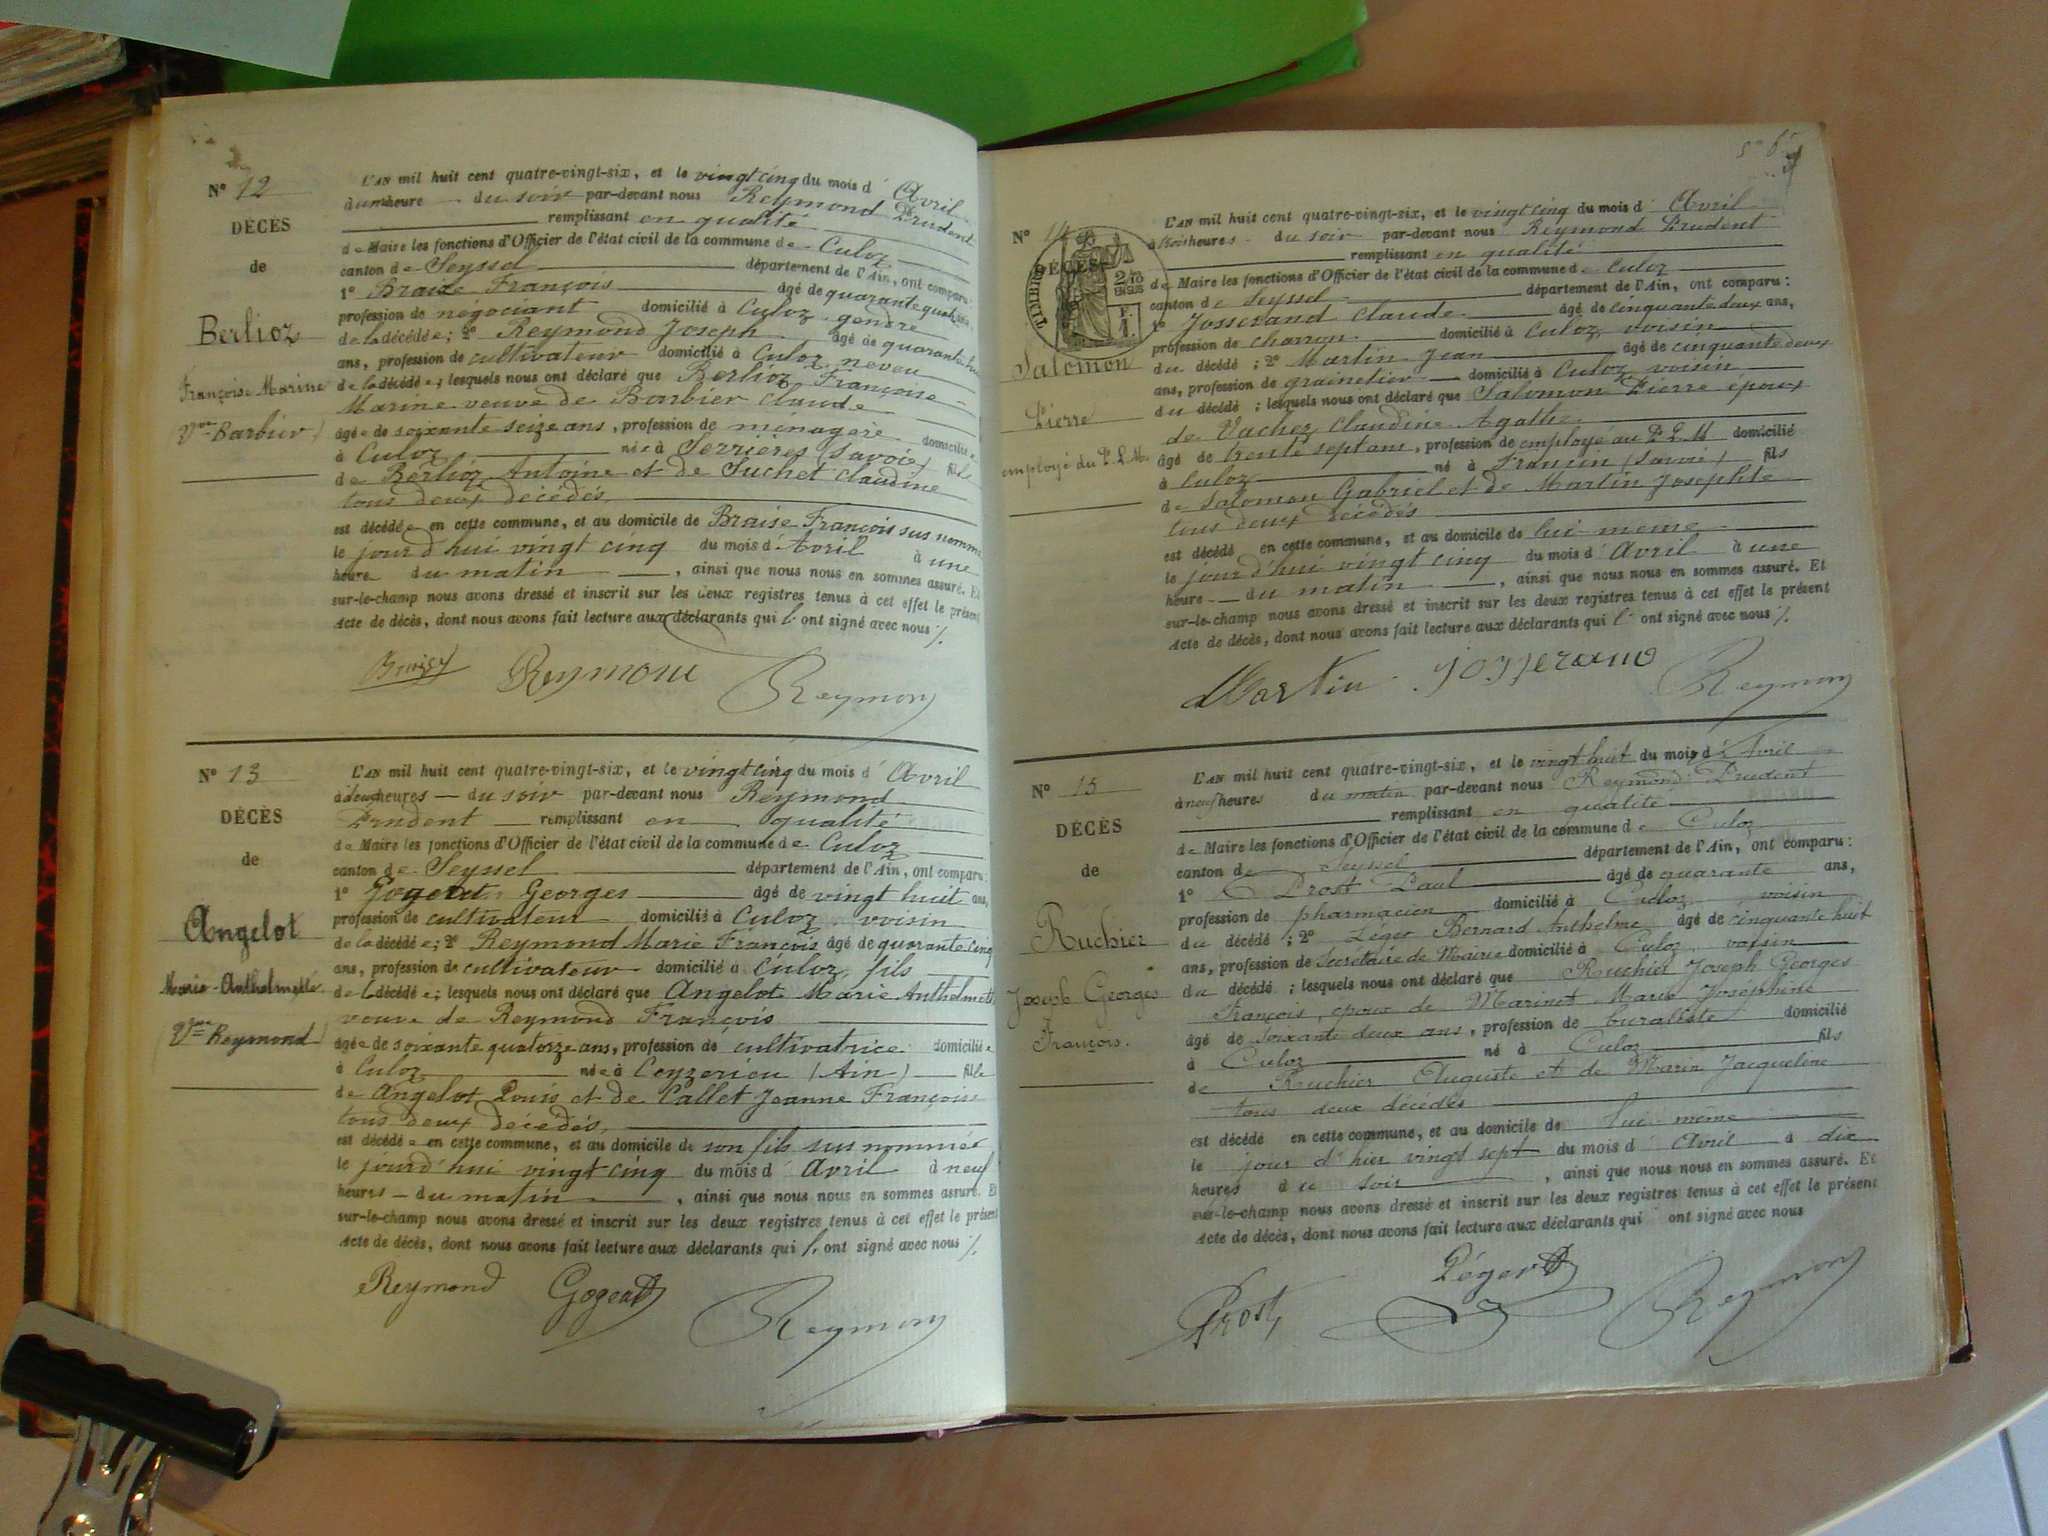 N° 12
DÉCÈS
de
Berlioz
Françoise Marine
Vve Barbier
L'AN mil huit cent quatre-vingt-six, et le vingt cinq du mois d'Avril
à une heure du soir par-devant nous Reymond Prudent
remplissant en qualité
de Maire les fonctions d'Officier de l'état civil de la commune de Culoz
canton de Seyssel département de l'Ain, ont comparu:
1° Braise François âgé de quarante quatre ans,
profession de négociant domicilié à Culoz gendre
de la décédée; 2° Reymond Joseph âgé de quarante
ans, profession de cultivateur domicilié à Culoz neveu
de la décédée; lesquels nous ont déclaré que Berlioz Françoise
Marine veuve de Barbier Claude
âgée de soixante seize ans, profession de ménagère domiciliée
à Culoz née à Serrières (Savoie) fille
de Berlioz Antoine et de Suchet Claudine
tous deux décédés
est décédée en cette commune, et au domicile de Braise François sus nommé
le jourd'hui vingt cinq du mois d'Avril à une
heure du matin, ainsi que nous nous en sommes assuré. Et
sur-le-champ nous avons dressé et inscrit sur les deux registres tenus à cet effet le présent
Acte de décès, dont nous avons fait lecture aux déclarants qui l'ont signé avec nous ./.
Reymond Reymond
N° 13
DÉCÈS
de
Angelot
Marie-Anthelmette
Vve Reymond
L'AN mil huit cent quatre-vingt-six, et le vingt cinq du mois d'Avril
à deux heures du soir par-devant nous Reymond
Prudent remplissant en qualité
de Maire les fonctions d'Officier de l'état civil de la commune de Culoz
canton de Seyssel département de l'Ain, ont comparu:
1° Georges âgé de vingt huit ans,
profession de cultivateur domicilié à Culoz voisin
de la décédée; 2° Reymond Marie François âgé de quarante cinq
ans, profession de cultivateur domicilié à Culoz, fils
de la décédée; lesquels nous ont déclaré que Angelot Marie Anthelmette
veuve de Reymond François
âgée de soixante quatorze ans, profession de cultivatrice domiciliée
à Culoz née à Ceyzerieu (Ain) fille
de Angelot Louis et de Callet Jeanne Françoise
tous deux décédés
est décédée en cette commune, et au domicile de son fils sus nommé
le jourd'hui vingt cinq du mois d'Avril à neuf
heures du matin, ainsi que nous nous en sommes assuré. Et
sur-le-champ nous avons dressé et inscrit sur les deux registres tenus à cet effet le présent
Acte de décès, dont nous avons fait lecture aux déclarants qui l'ont signé avec nous ./.
Reymond Gogeat Reymond
N° 14
DÉCÈS
TIMBRE
Salomon
Pierre
employé du P.L.M.
L'AN mil huit cent quatre-vingt-six, et le vingt cinq du mois d'Avril
à trois heures du soir par-devant nous Reymond Prudent
remplissant en qualité
de Maire les fonctions d'Officier de l'état civil de la commune de Culoz
canton de Seyssel département de l'Ain, ont comparu:
1° Josserand Claude âgé de cinquante deux ans,
profession de charron domicilié à Culoz voisin
du décédé; 2° Martin Jean âgé de cinquante deux
ans, profession de grainetier domicilié à Culoz voisin
du décédé; lesquels nous ont déclaré que Salomon Pierre époux
de Vachez Claudine Agathe
âgé de trente sept ans, profession de employé au P L M domicilié
à Culoz né à Francin (Savoie) fils
de Salomon Gabriel et de Martin Josephte
tous deux décédés
est décédé en cette commune, et au domicile de lui même
le jourd'hui vingt cinq du mois d'Avril à une
heure du matin, ainsi que nous nous en sommes assuré. Et
sur-le-champ nous avons dressé et inscrit sur les deux registres tenus à cet effet le présent
Acte de décès, dont nous avons fait lecture aux déclarants qui l'ont signé avec nous ./.
Martin Josserand Reymond
N° 15
DÉCÈS
de
Ruchier
Joseph Georges
François.
L'AN mil huit cent quatre-vingt-six, et le vingt huit du mois d'Avril
à neuf heures du matin par-devant nous Reymond Prudent
remplissant en qualité
de Maire les fonctions d'Officier de l'état civil de la commune de Culoz
canton de Seyssel département de l'Ain, ont comparu:
1° Prost Paul âgé de quarante ans,
profession de pharmacien domicilié à Culoz, voisin
du décédé; 2° Léger Bernard Anthelme âgé de cinquante huit
ans, profession de Secrétaire de Mairie domicilié à Culoz, voisin
du décédé; lesquels nous ont déclaré que Ruchier Joseph Georges
François, époux de Marinet Marie Joséphine
âgé de soixante deux ans, profession de buraliste domicilié
à Culoz né à Culoz fils
de Ruchier Auguste et de Marin Jacqueline
tous deux décédés
est décédé en cette commune, et au domicile de lui même
le jour d'hier vingt sept du mois d'Avril à dix
heures du soir, ainsi que nous nous en sommes assuré. Et
sur-le-champ nous avons dressé et inscrit sur les deux registres tenus à cet effet le présent
Acte de décès, dont nous avons fait lecture aux déclarants qui ont signé avec nous
Prost Léger Reymond